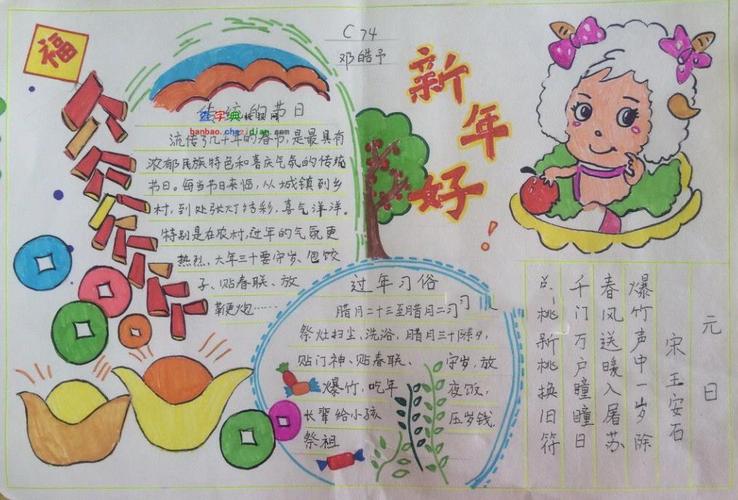 福
C 74
邓皓予
新年好！
传统的节日
查字典
banbao.chazidian.com
流传了几千年的春节，是最具有
浓郁民族特色和喜庆气氛的传统
节日。每当节日来临，从城镇到乡
村，到处张灯结彩，喜气洋洋。
特别是在农村，过年的气氛更
热烈，大年三十要守岁、包饺
子、贴春联、放
鞭炮……
过年习俗
腊月二十三至腊月二
祭灶扫尘、洗浴，腊月三十除夕，
贴门神、贴春联、守岁、放
爆竹、吃年夜饭，
长辈给小孩压岁钱，
祭祖
元日
宋 王安石
爆竹声中一岁除
春风送暖入屠苏
千门万户瞳瞳日
总桃新桃换旧符